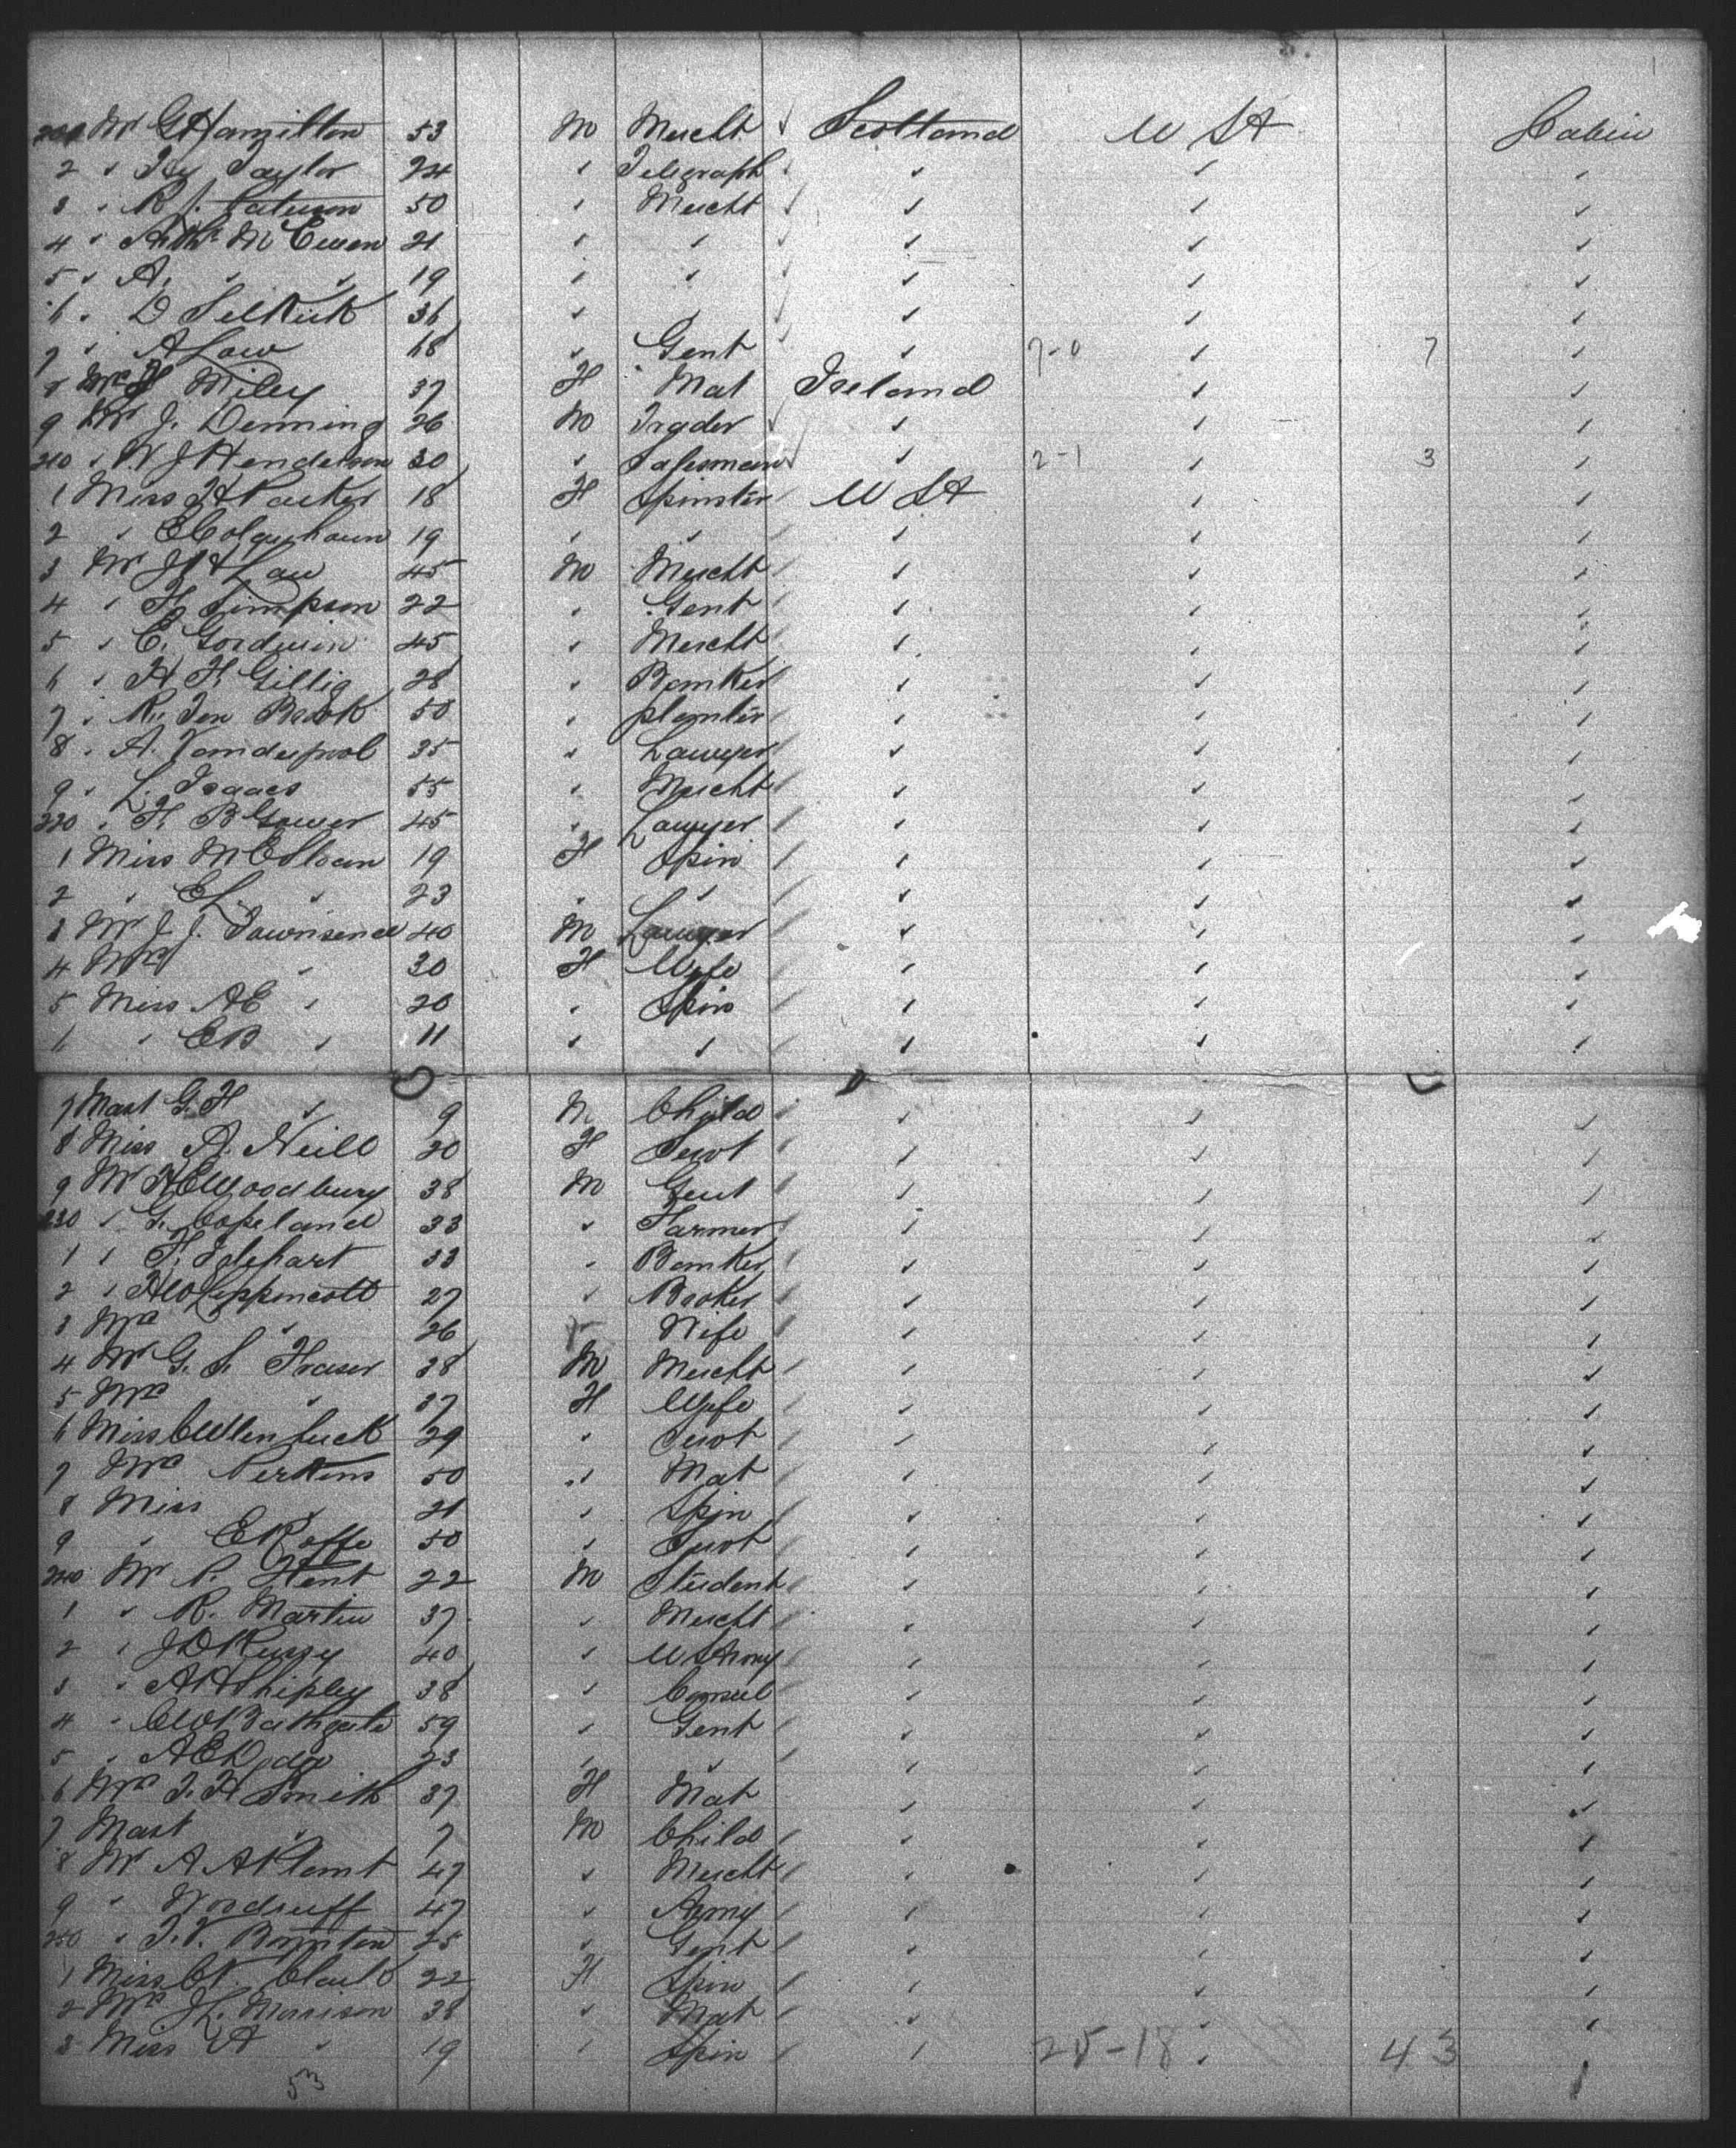 201 Mr G Hamilton 53 M Mercht Scotland U St Cabin
2 " Hy Taylor 24 " Telegraph " " "
3 " R J. Paterson 50 " Mercht " " "
4 " Arthr McEwen 21 " " " " "
5 " A. " " 19 " " " " "
6 " D Selkirk 36 " " " " "
7 " A Law 68 " Gent " 7-0 " 7 "
8 Mrs H Miley 37 F Mat Ireland " "
9 Mr J. Denning 26 M Trader " " "
210 " W J Henderson 30 " Salesman " 2-1 " 3 "
1 Miss H Packer 18 F Spinster U St " "
2 " E Colquhoun 19 " " " " "
3 Mr J H Law 45 M Mercht " " "
4 " H Simpson 22 " Gent " " "
5 " E. Gordwin 45 " Mercht " " "
6 " H F Gillig 28 " Banker " " "
7 " R. Ten Brook 50 " planter " " "
8 " A. Vanderpool 35 " Lawyer " " "
9 " L. Isaacs 55 " Mercht " " "
220 " F. B Gower 45 " Lawyer " " "
1 Miss M E Sloan 19 F Spin " " "
2 " E L " 23 " " " " "
3 Mr J. J. Townsend 40 M Lawyer " " "
4 Mrs " 30 F Wife " " "
5 Miss A E " 20 " Spin " " "
6 " E B " 11 " " " " "
7 Mast G. H " 9 M Child " " "
8 Miss A. Neill 20 F Servt " " "
9 Mr H E Woodbury 38 M Gent " " "
230 " G. Copeland 33 " Farmer " " "
1 " F. 33 " Banker " " "
2 " Lippincott 27 " Broker " " "
3 Mrs " 26 Wife " " "
4 Mr G. S. Fraser 38 M Mercht " " "
5 Mrs " 37 F Wife " " "
6 Miss 29 " Servt " " "
7 Mrs Perkins 50 " Mat " " "
8 Miss " 21 " Spin " " "
9 " E Roffe 50 " Servt " " "
240 Mr P. Hent 22 M Student " " "
1 " R. Martin 37 " Mercht " " "
2 " J D 40 " U S Army " " "
3 " A H Shipley 38 " Consul " " "
4 " C W Bathgate 59 " Gent " " "
5 " A E Dodge 23 " " " " "
6 Mrs T. H Smith 37 F Mat " " "
7 Mast " 7 M Child " " "
8 Mr A A Plant 47 " Mercht " " "
9 " Woodruff 47 " Army " " "
250 " T. V. Boynton 25 " Gent " " "
1 Miss C V. Clark 22 F Spin " " "
2 Mrs J L. Morrison 38 " Mat " " "
3 Miss A " 19 " Spin " 25-18 " 43 "
53